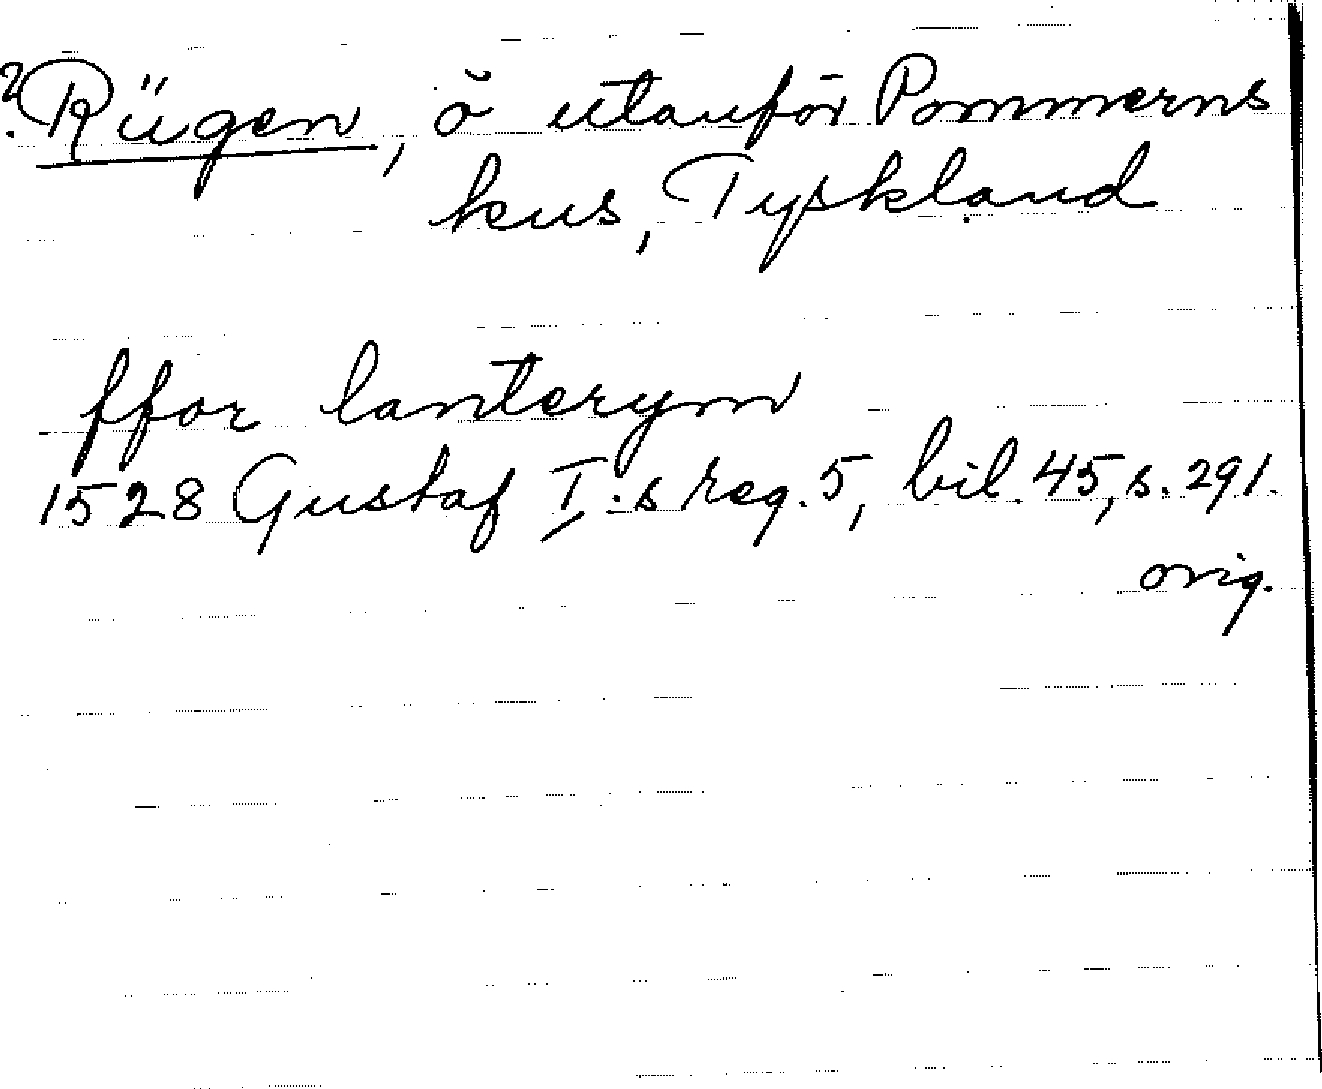 ? Rügen, ö utanför Pommerns
kus, Tyskland
ffor lanterym
1528 Gustaf I:s reg. 5, bil. 45, s. 291.
orig.